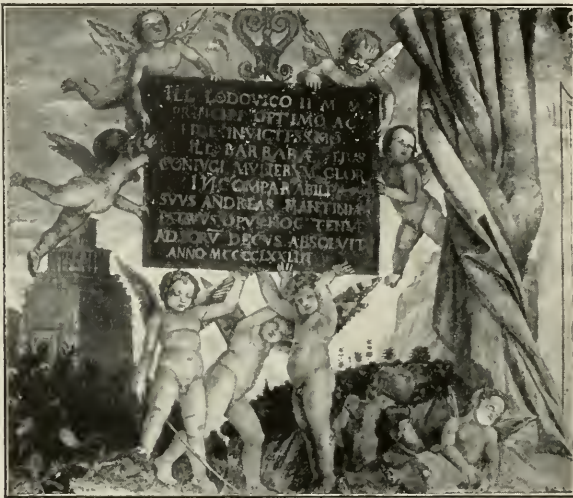 ILL LODOVICO II M M
PRINCIPI OPTIMO AC
FIDE INVICTISSIMO
ILL BARBARÆ EJUS
CONIVGI MVLIERVM GLOR
INCOMPARABILI
SVVS ANDREAS MANTINIA
PATAVVS OPVS HOC TENVE
AD EORV DECVS ABSOLVIT
ANNO MCCCCLXXIIII